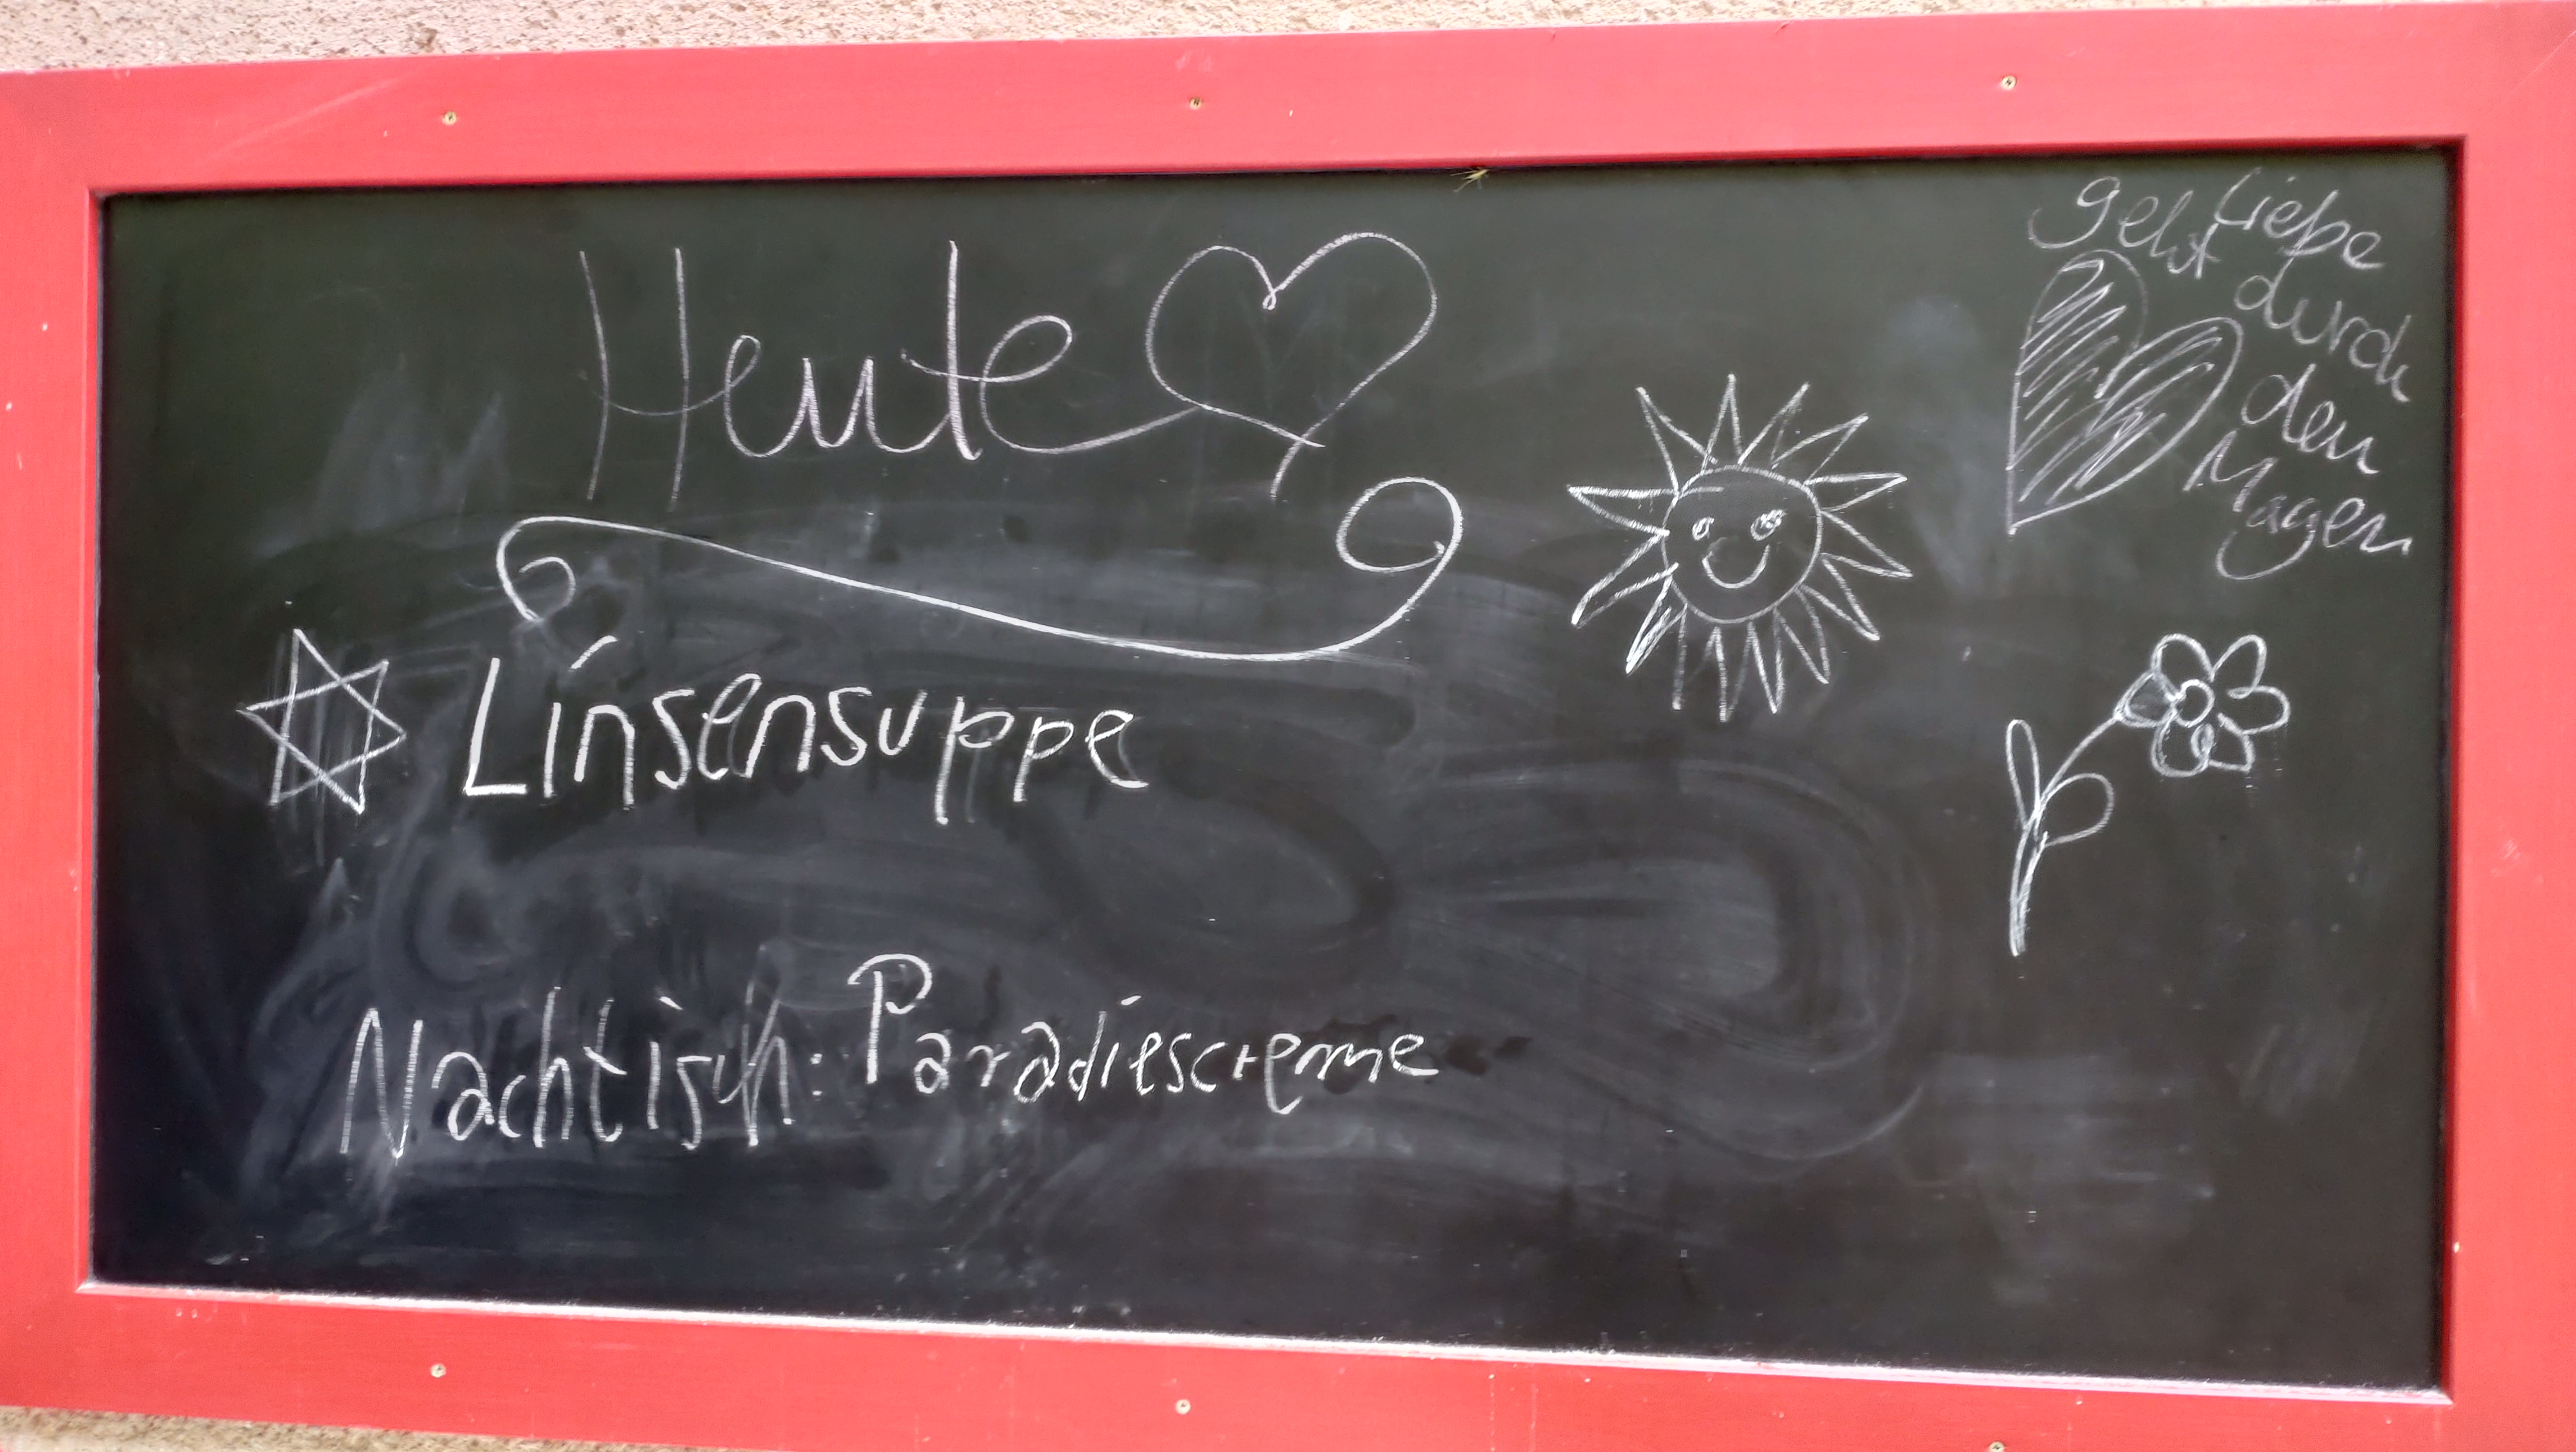 Heute
Linsensuppe
Nachtisch: Paradiescreme
Liebe
geht
durch
den
Magen